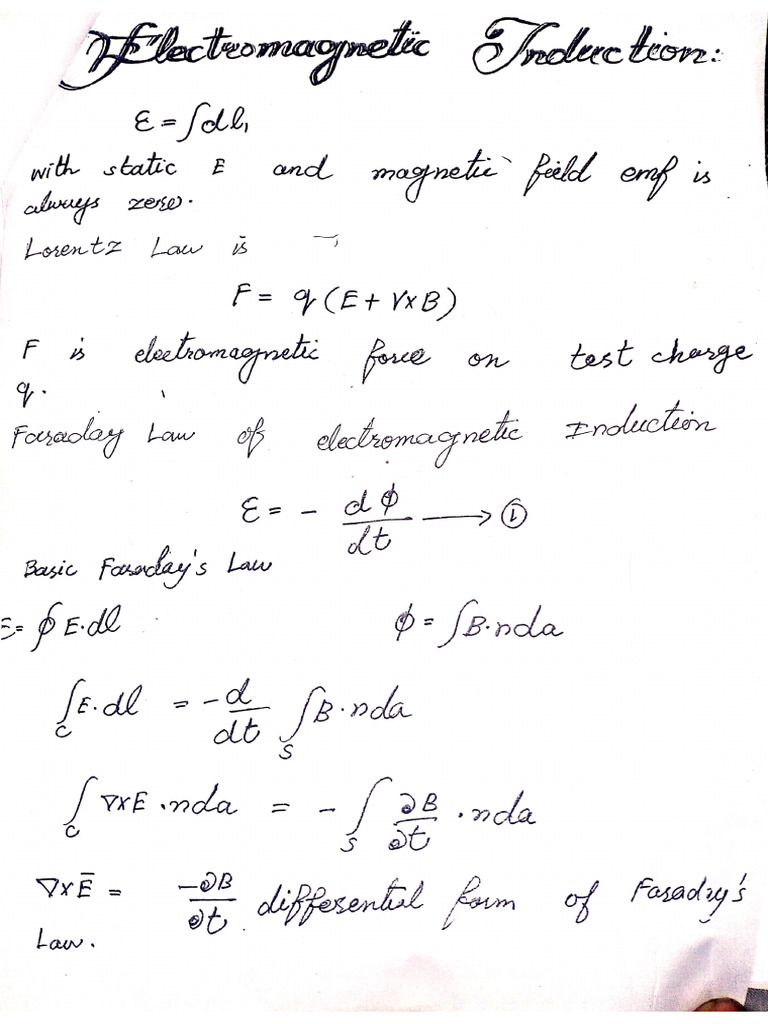 Electromagnetic Induction:
ε = ∫dl,
with static E and magnetic field emf is
always zero.
Lorentz Law is
F = q (E + V×B)
F is electromagnetic force on test charge
q.
Faraday Law of electromagnetic Induction
ε = - dϕ/dt ⟶ ①
Basic Faraday's Law
ε= ∮E·dl ϕ = ∫B·nda
∫_C E·dl = -d/dt ∫_S B·nda
∫_C ∇×E·nda = - ∫_S ∂B/∂t ·nda
∇×Ē = -∂B/∂t differential form of Faraday's
Law.